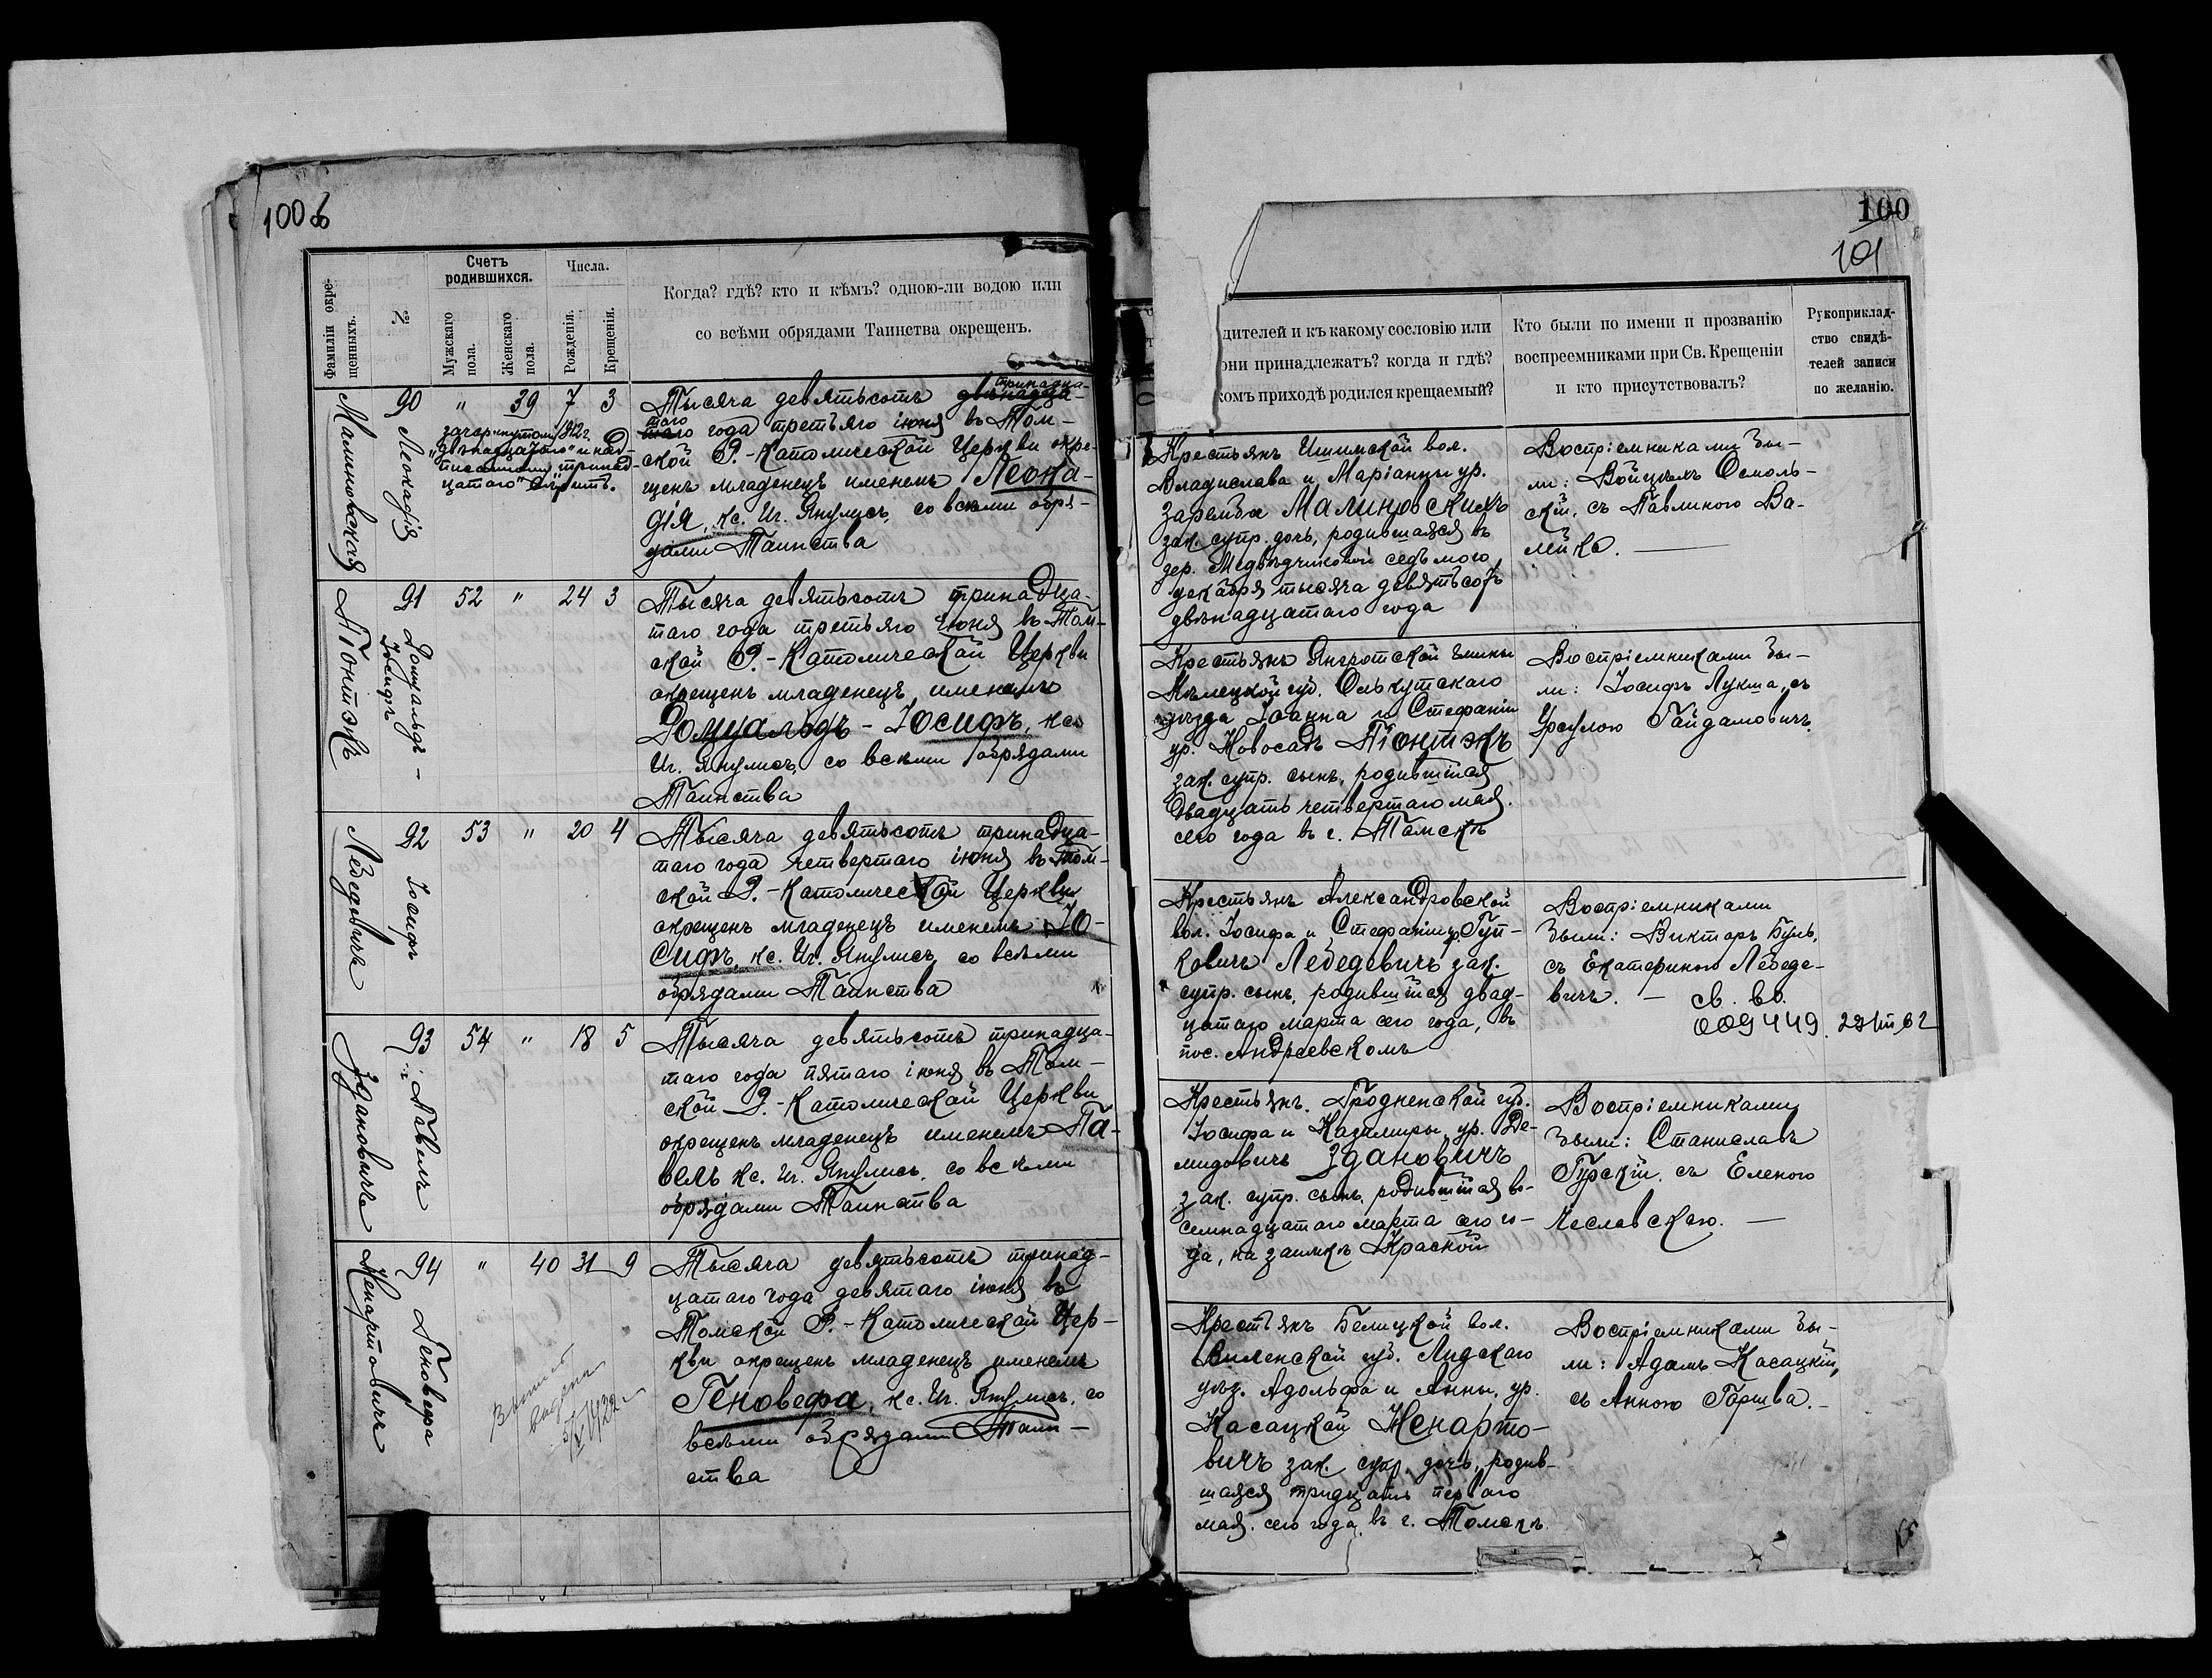 100 об
Фамиліи окре-
щенныхъ.
№
Счетъ
родившихся.
Мужскаго
пола.
Женскаго
пола.
Числа.
Рожденія.
Крещенія.
Когда? гдѣ? кто и кѣмъ? одною-ли водою или
со всѣми обрядами Таинства окрещенъ.
Малиновская
90
Леокадія
"
39
7
3
зачеркнутому 1912 г.
"двѣнадцатаго" и над-
писанному "тринад-
цатаго" вѣрить.
тринадца-
Тысяча девятьсотъ двѣнадца-
таго
таго года третьяго іюня въ Том-
ской Р.-Католической Церкви окре-
щенъ младенецъ именемъ Леока-
дія, кс. Иг. Янулисъ, со всѣми обря-
дами Таинства
Піонтэкъ
91
Ромуальдъ -
Іосифъ
52
"
24
3
Тысяча девятьсотъ тринадца-
таго года третьяго іюня въ Том-
ской Р.-Католической Церкви
окрещенъ младенецъ именемъ
Ромуальдъ - Іосифъ, кс.
Иг. Янулисъ, со всѣми обрядами
Таинства
Лебедевичъ
92
Іосифъ
53
"
20
4
Тысяча девятьсотъ тринадца-
таго года четвертаго іюня въ Том-
ской Р.-Католической Церкви
окрещенъ младенецъ именемъ Іо-
сифъ, кс. Иг. Янулисъ, со всѣми
обрядами Таинства
Здановичъ
93
Павелъ
54
"
18
5
Тысяча девятьсотъ тринадца-
таго года пятаго іюня въ Том-
ской Р.-Католической Церкви
окрещенъ младенецъ именемъ Па-
велъ кс. Иг. Янулисъ, со всѣми
обрядами Таинства
Ненартовичъ
94
Геновефа
"
40
31
9
Выпись
выдана
Тысяча девятьсотъ тринад-
цатаго года девятаго іюня въ
Томской Р.-Католической Цер-
кви окрещенъ младенецъ именемъ
Геновефа, кс. Иг. Янулисъ, со
всѣми обрядами Таин-
ства
100
101
дителей и къ какому сословію или
они принадлежатъ? когда и гдѣ?
комъ приходѣ родился крещаемый?
Кто были по имени и прозванію
воспреемниками при Св. Крещеніи
и кто присутствовалъ?
Рукоприклад-
ство свидѣ-
телей записи
по желанію.
Крестьянъ Ишимской вол.
Владислава и Маріанны ур.
Заремба Малиновскихъ
зак. супр. дочь, родившаяся въ
дер. Медвѣдчиковой седьмого
декабря тысяча девятьсотъ
двѣнадцатаго года
Воспріемниками бы-
ли: Войцѣхъ Осмоль-
скій, съ Павлиною Ва-
лейко.
Крестьянъ Янгротской гмины
Кѣлецкой губ. Олькутскаго
уѣзда Іоанна и Стефаніи
ур. Новосадъ Піонтэкъ
зак. супр. сынъ, родившійся
двадцать четвертаго мая.
сего года въ г. Томскѣ
Воспріемниками бы-
ли: Іосифъ Лукша, съ
Урсулою Гайдамовичъ.
Крестьянъ Александровской
вол. Іосифа и Стефаніи ур. Гуп-
ковичъ Лебедевичъ зак.
супр. сынъ, родившійся двад-
цатаго марта сего года, въ
пос. Андреевскомъ
Воспріемниками
были: Викторъ Буль,
съ Екатериною Лебеде-
вичъ. — св. во.
009449. 29/III 62
Крестьянъ. Гродненской губ.
Іосифа и Казимиры ур. Де-
мидовичъ Здановичъ
зак. супр. сынъ, родившійся во-
семнадцатаго марта сего го-
да, на заимкѣ Краской
Воспріемниками
были: Станиславъ
Гурскій, съ Еленою
Лесловскою. —
Крестьянъ Белицкой вол.
Виленской губ. Лидскаго
уѣз. Адольфа и Анны, ур.
Касацкой Ненарто-
вичъ зак. супр. дочь, родив-
шаяся тридцать перваго
мая. сего года въ г. Томскѣ.
Воспріемниками бы-
ли: Адамъ Касацкій,
съ Анною Горшва. -